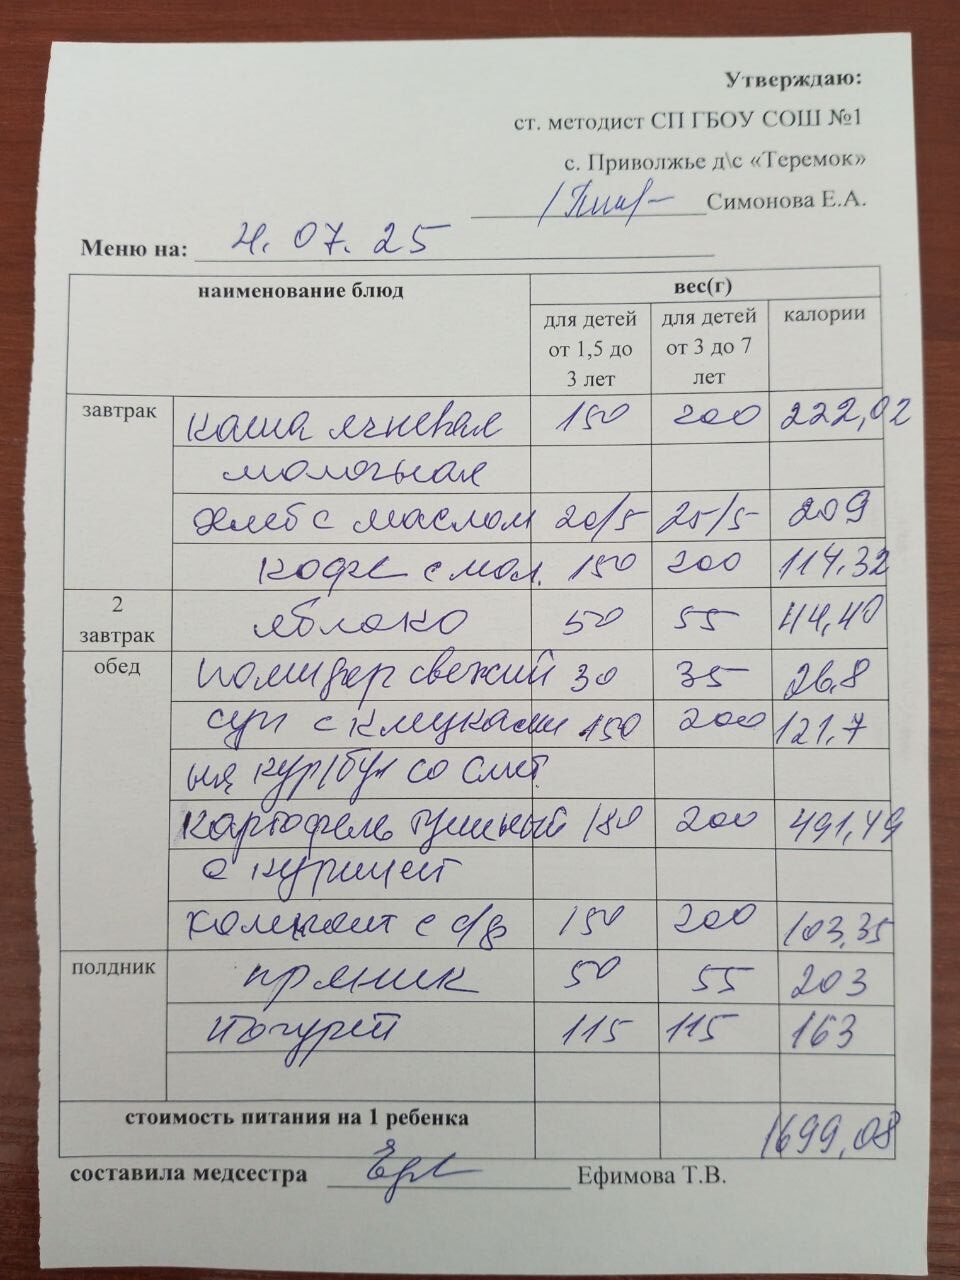 Утверждаю:
ст. методист СП ГБОУ СОШ №1
с. Приволжье д\с «Теремок»
Симонова Е.А.
Меню на: 21.07.25
наименование блюд вес(г)
для детей от 1,5 до 3 лет для детей от 3 до 7 лет калории
завтрак каша ячневая 150 200 222,02
молочная
хлеб с маслом 20/5 25/5 209
кофе с мол. 150 200 114.32
2 завтрак яблоко 50 55 44,40
обед помидор свежий 30 35 26.8
суп с клецками 150 200 121.7
на кур/бул со смет
картофель тушеный 180 200 491,49
с курицей
компот с с/ф 150 200 103,35
полдник пряник 50 55 203
йогурт 115 115 163
стоимость питания на 1 ребенка 1699,08
составила медсестра Ефимова Т.В.